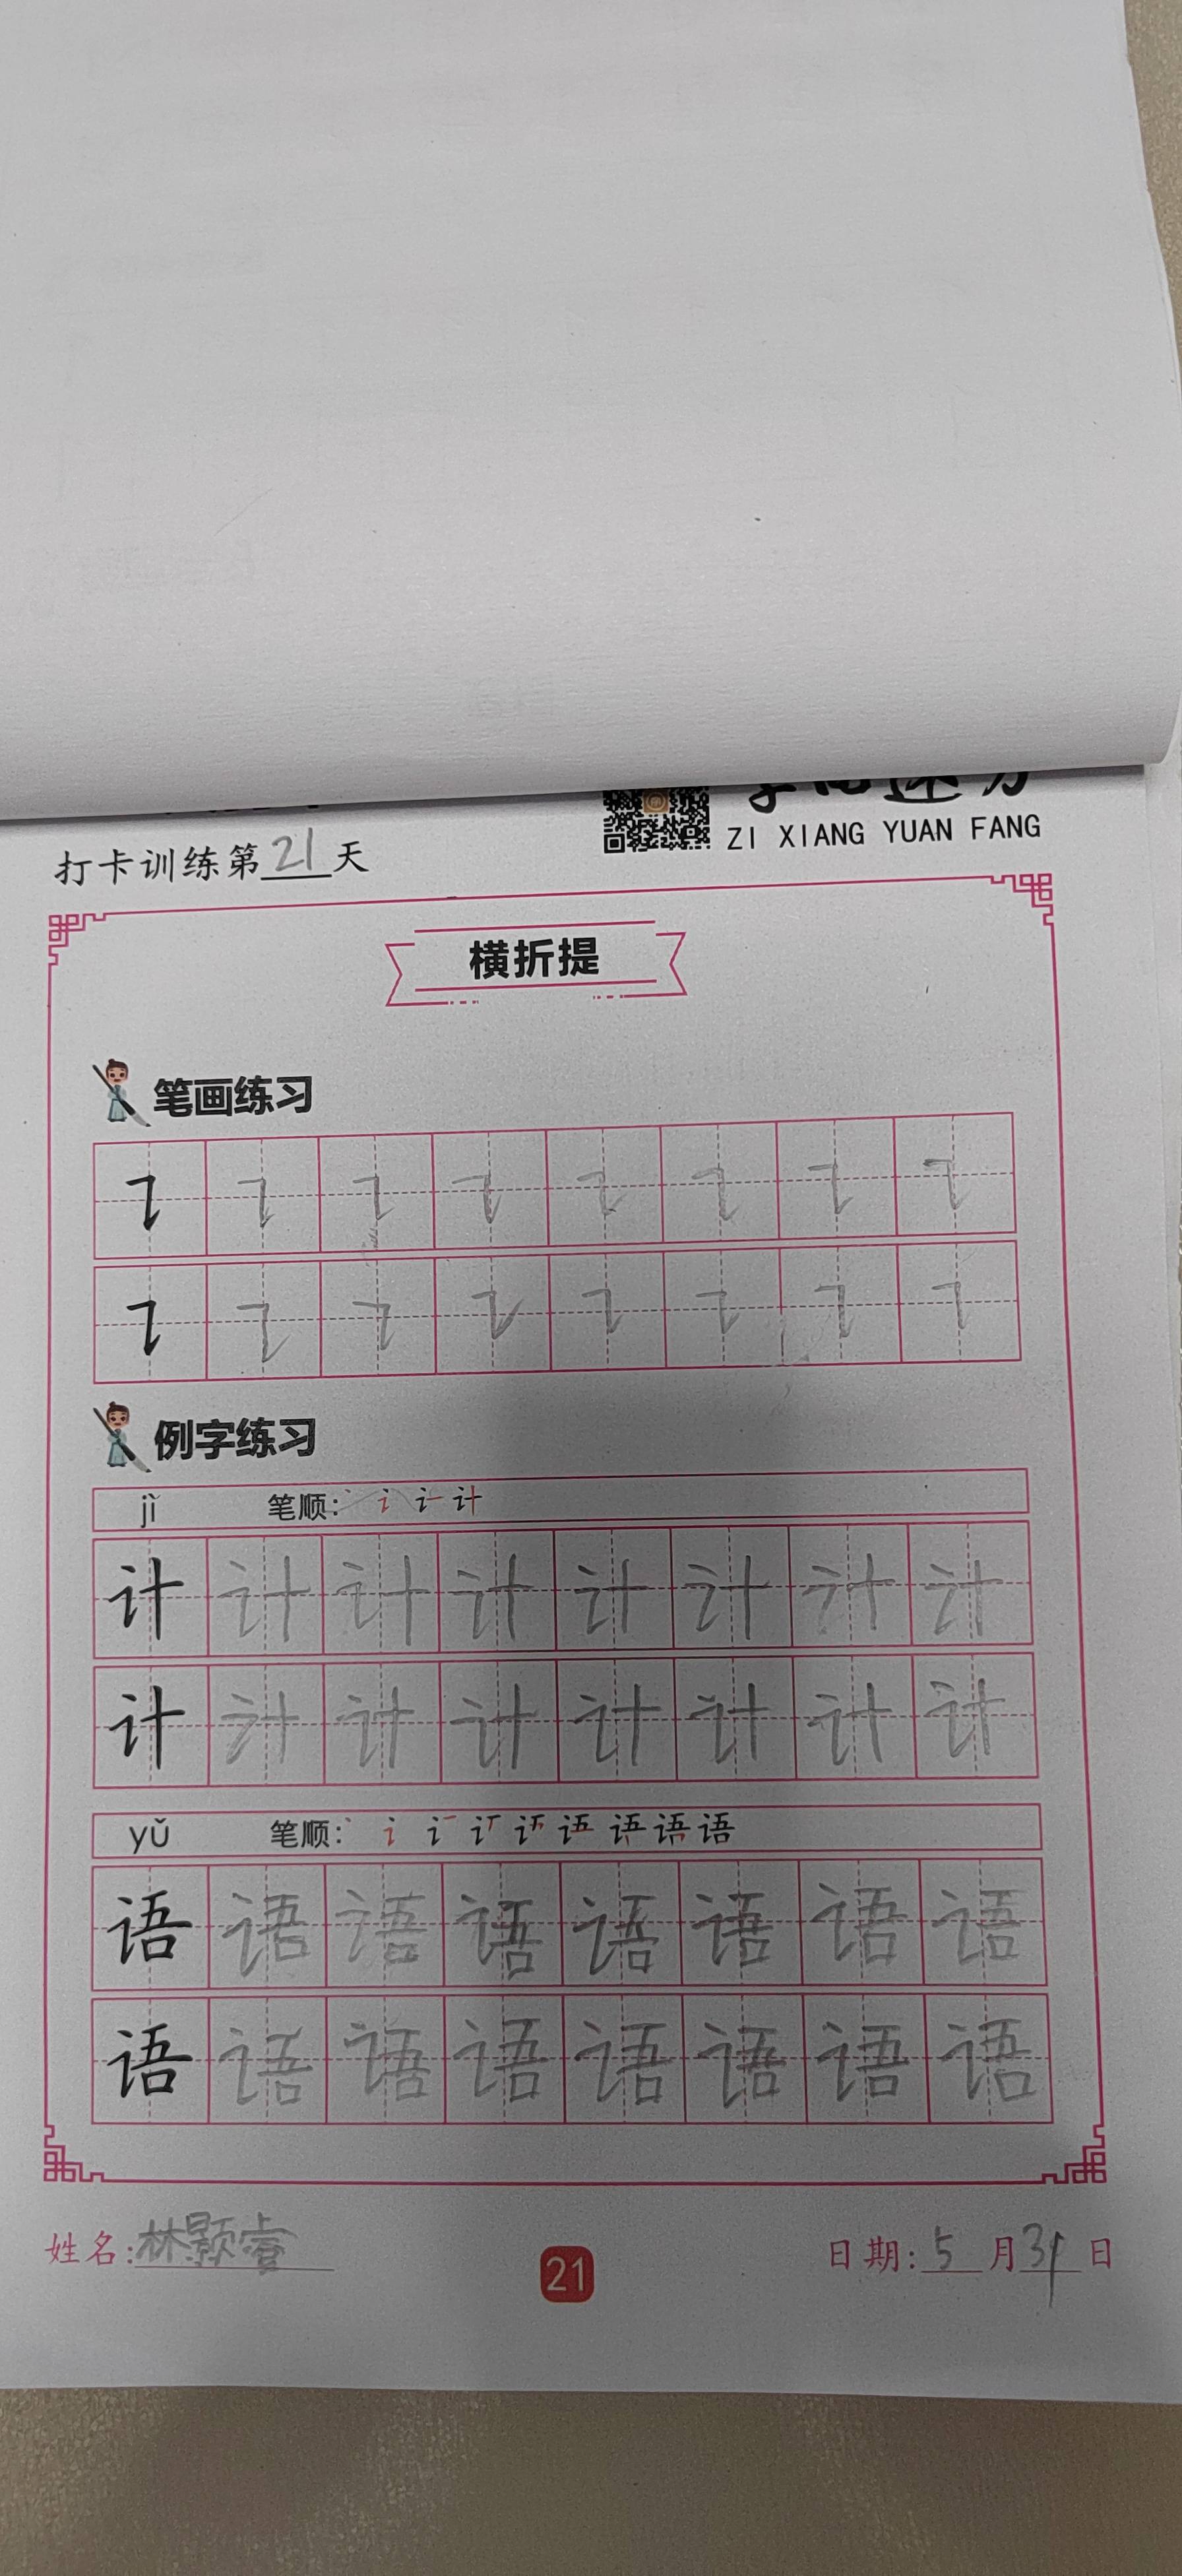 ZI XIANG YUAN FANG
打卡训练第21天
横折提
笔画练习
例字练习
jì 笔顺: 丶 讠 计
计 计 计 计 计 计 计 计
计 计 计 计 计 计 计 计
yǔ 笔顺: 语 语
语 语 语 语 语 语 语 语
语 语 语 语 语 语 语 语
姓名:林颢睿
21
日期:5月31日